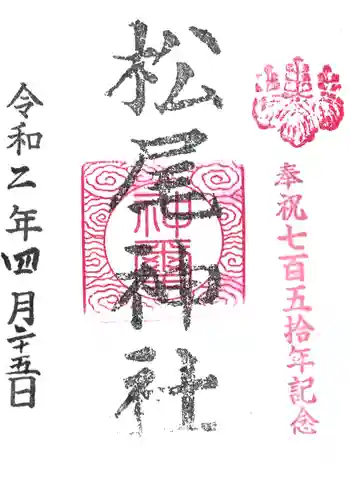 奉祝七百五拾年記念
松尾神社
令和二年四月二十五日